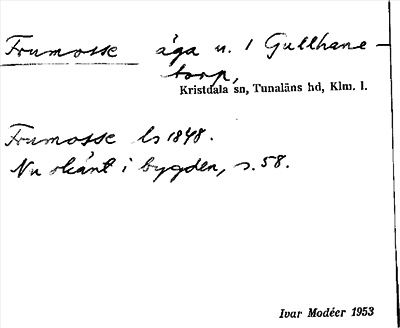 Frumosse äga u. 1 Gullhane-
torp,
Kristdala sn, Tunaläns hd, Klm. l.
Frumosse ls 1848.
Nu okänt i bygden, s. 58.
Ivar Modéer 1953